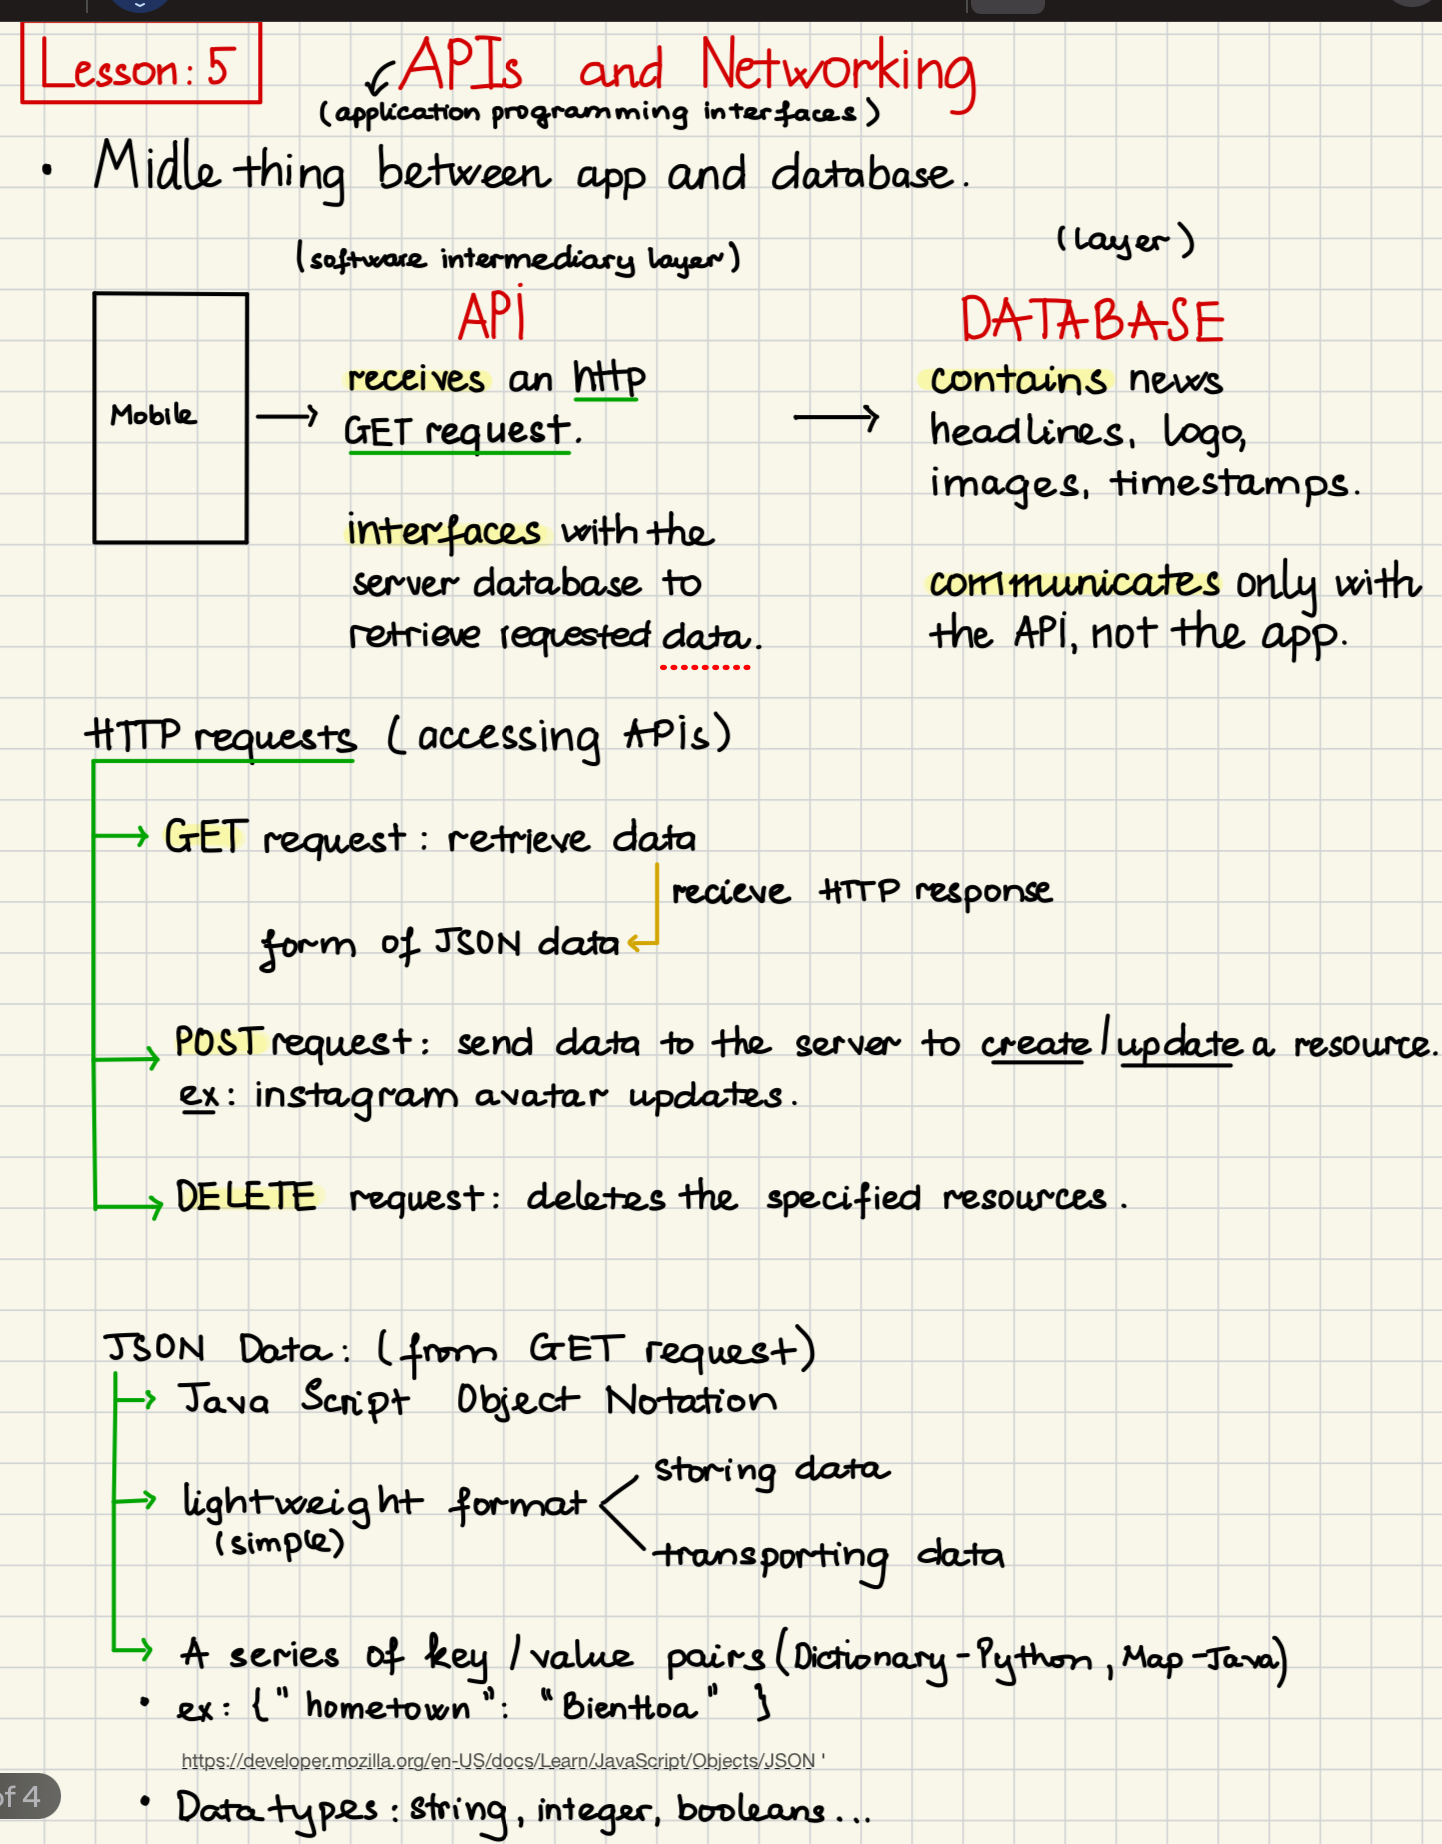 Lesson: 5
APIs and Networking
(application programming interfaces)
• Midle thing between app and database.
(software intermediary layer)
(layer)
API
DATABASE
Mobile
receives an http
GET request.
interfaces with the
server database to
retrieve requested data.
contains news
headlines, logo,
images, timestamps.
communicates only with
the API, not the app.
HTTP requests (accessing APIs)
GET request: retrieve data
recieve HTTP response
form of JSON data
POST request: send data to the server to create/update a resource.
ex: instagram avatar updates.
DELETE request: deletes the specified resources.
JSON Data: (from GET request)
Java Script Object Notation
lightweight format
(simple)
storing data
transporting data
A series of key/value pairs (Dictionary-Python, Map-Java)
• ex: {"hometown": "BienHoa" }
https://developer.mozilla.org/en-US/docs/Learn/JavaScript/Objects/JSON '
of 4
• Data types: string, integer, booleans...